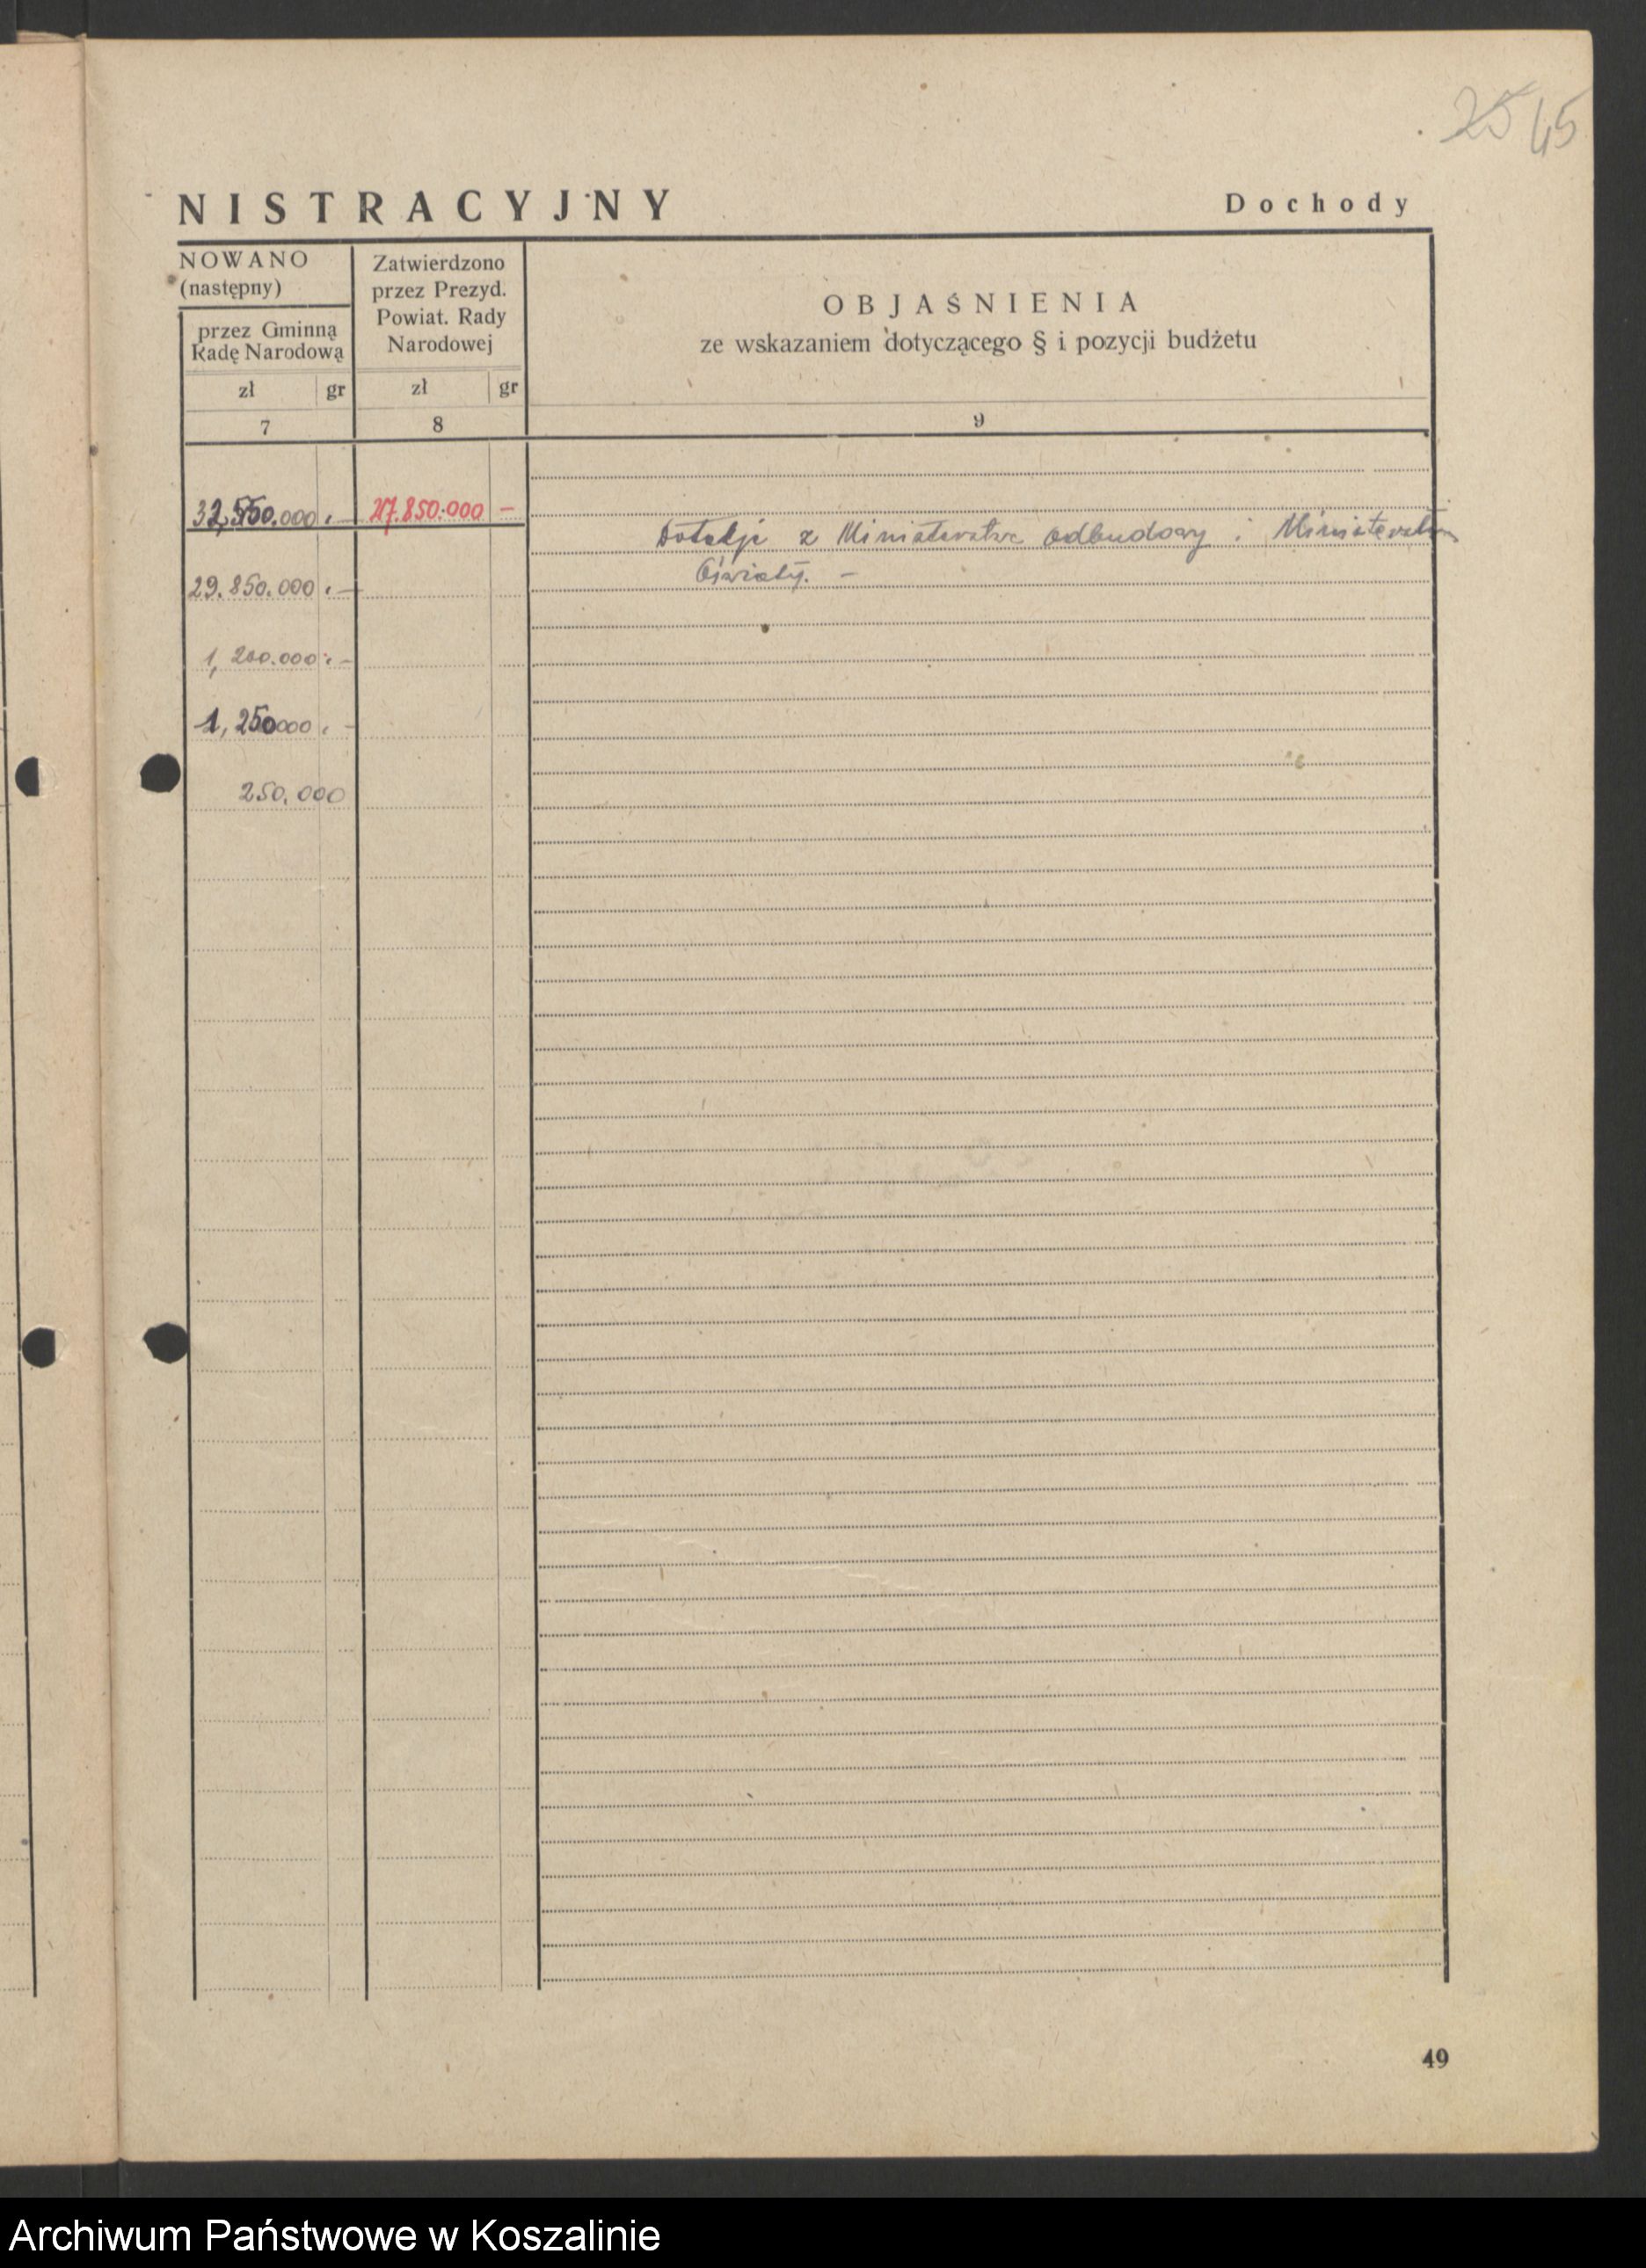 25 45
NISTRACYJNY
Dochody
NOWANO
(następny)
przez Gminną
Radę Narodową
zł gr
7
Zatwierdzono
przez Prezyd.
Powiat. Rady
Narodowej
zł gr
8
OBJAŚNIENIA
ze wskazaniem dotyczącego § i pozycji budżetu
9
32,550.000.— 27.850.000 —
Dotacje z Ministerstwa odbudowy i Ministerstwa
Oświaty. —
29.850.000.—
1,200.000.—
1,250000.—
250.000
49
Archiwum Państwowe w Koszalinie